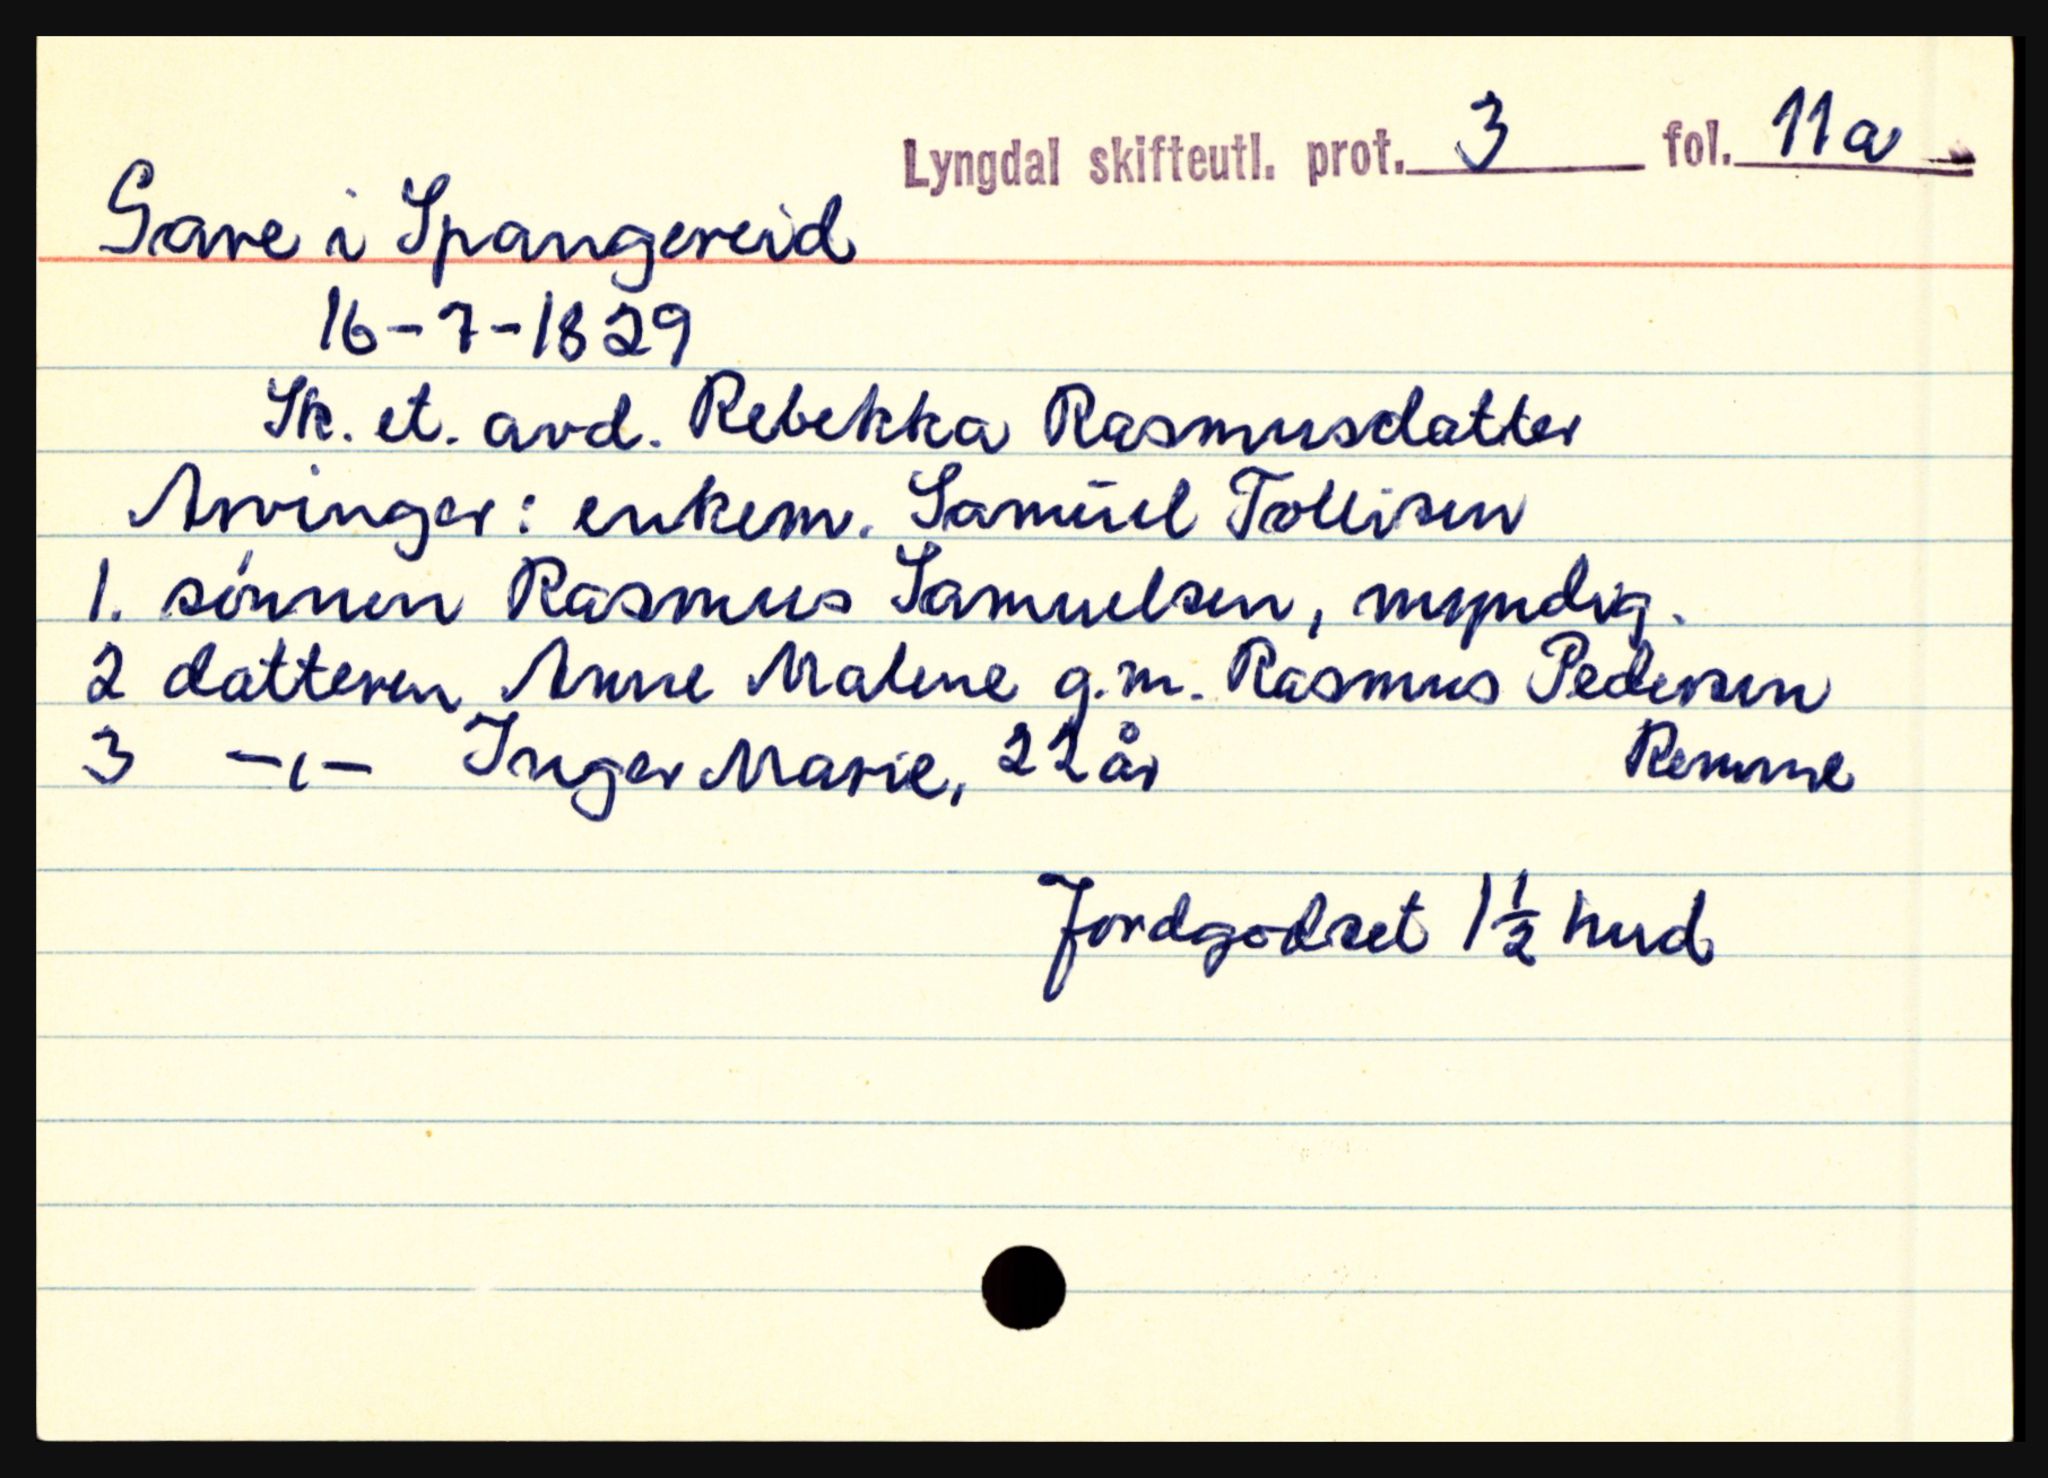 Lyngdal skifteutl. prot. 3 fol. 11a
Gare i Spangereid
16-7-1829
Sk. et. avd. Rebekka Rasmusdatter
Arvinger: enkem. Samuel Tollisen
1. sønnen Rasmus Samuelsen, myndig.
2 datteren Anne Malene g.m. Rasmus Pedersen
3 -,- Inger Marie, 22 år Remme
Jordgodset 1 1/2 hud